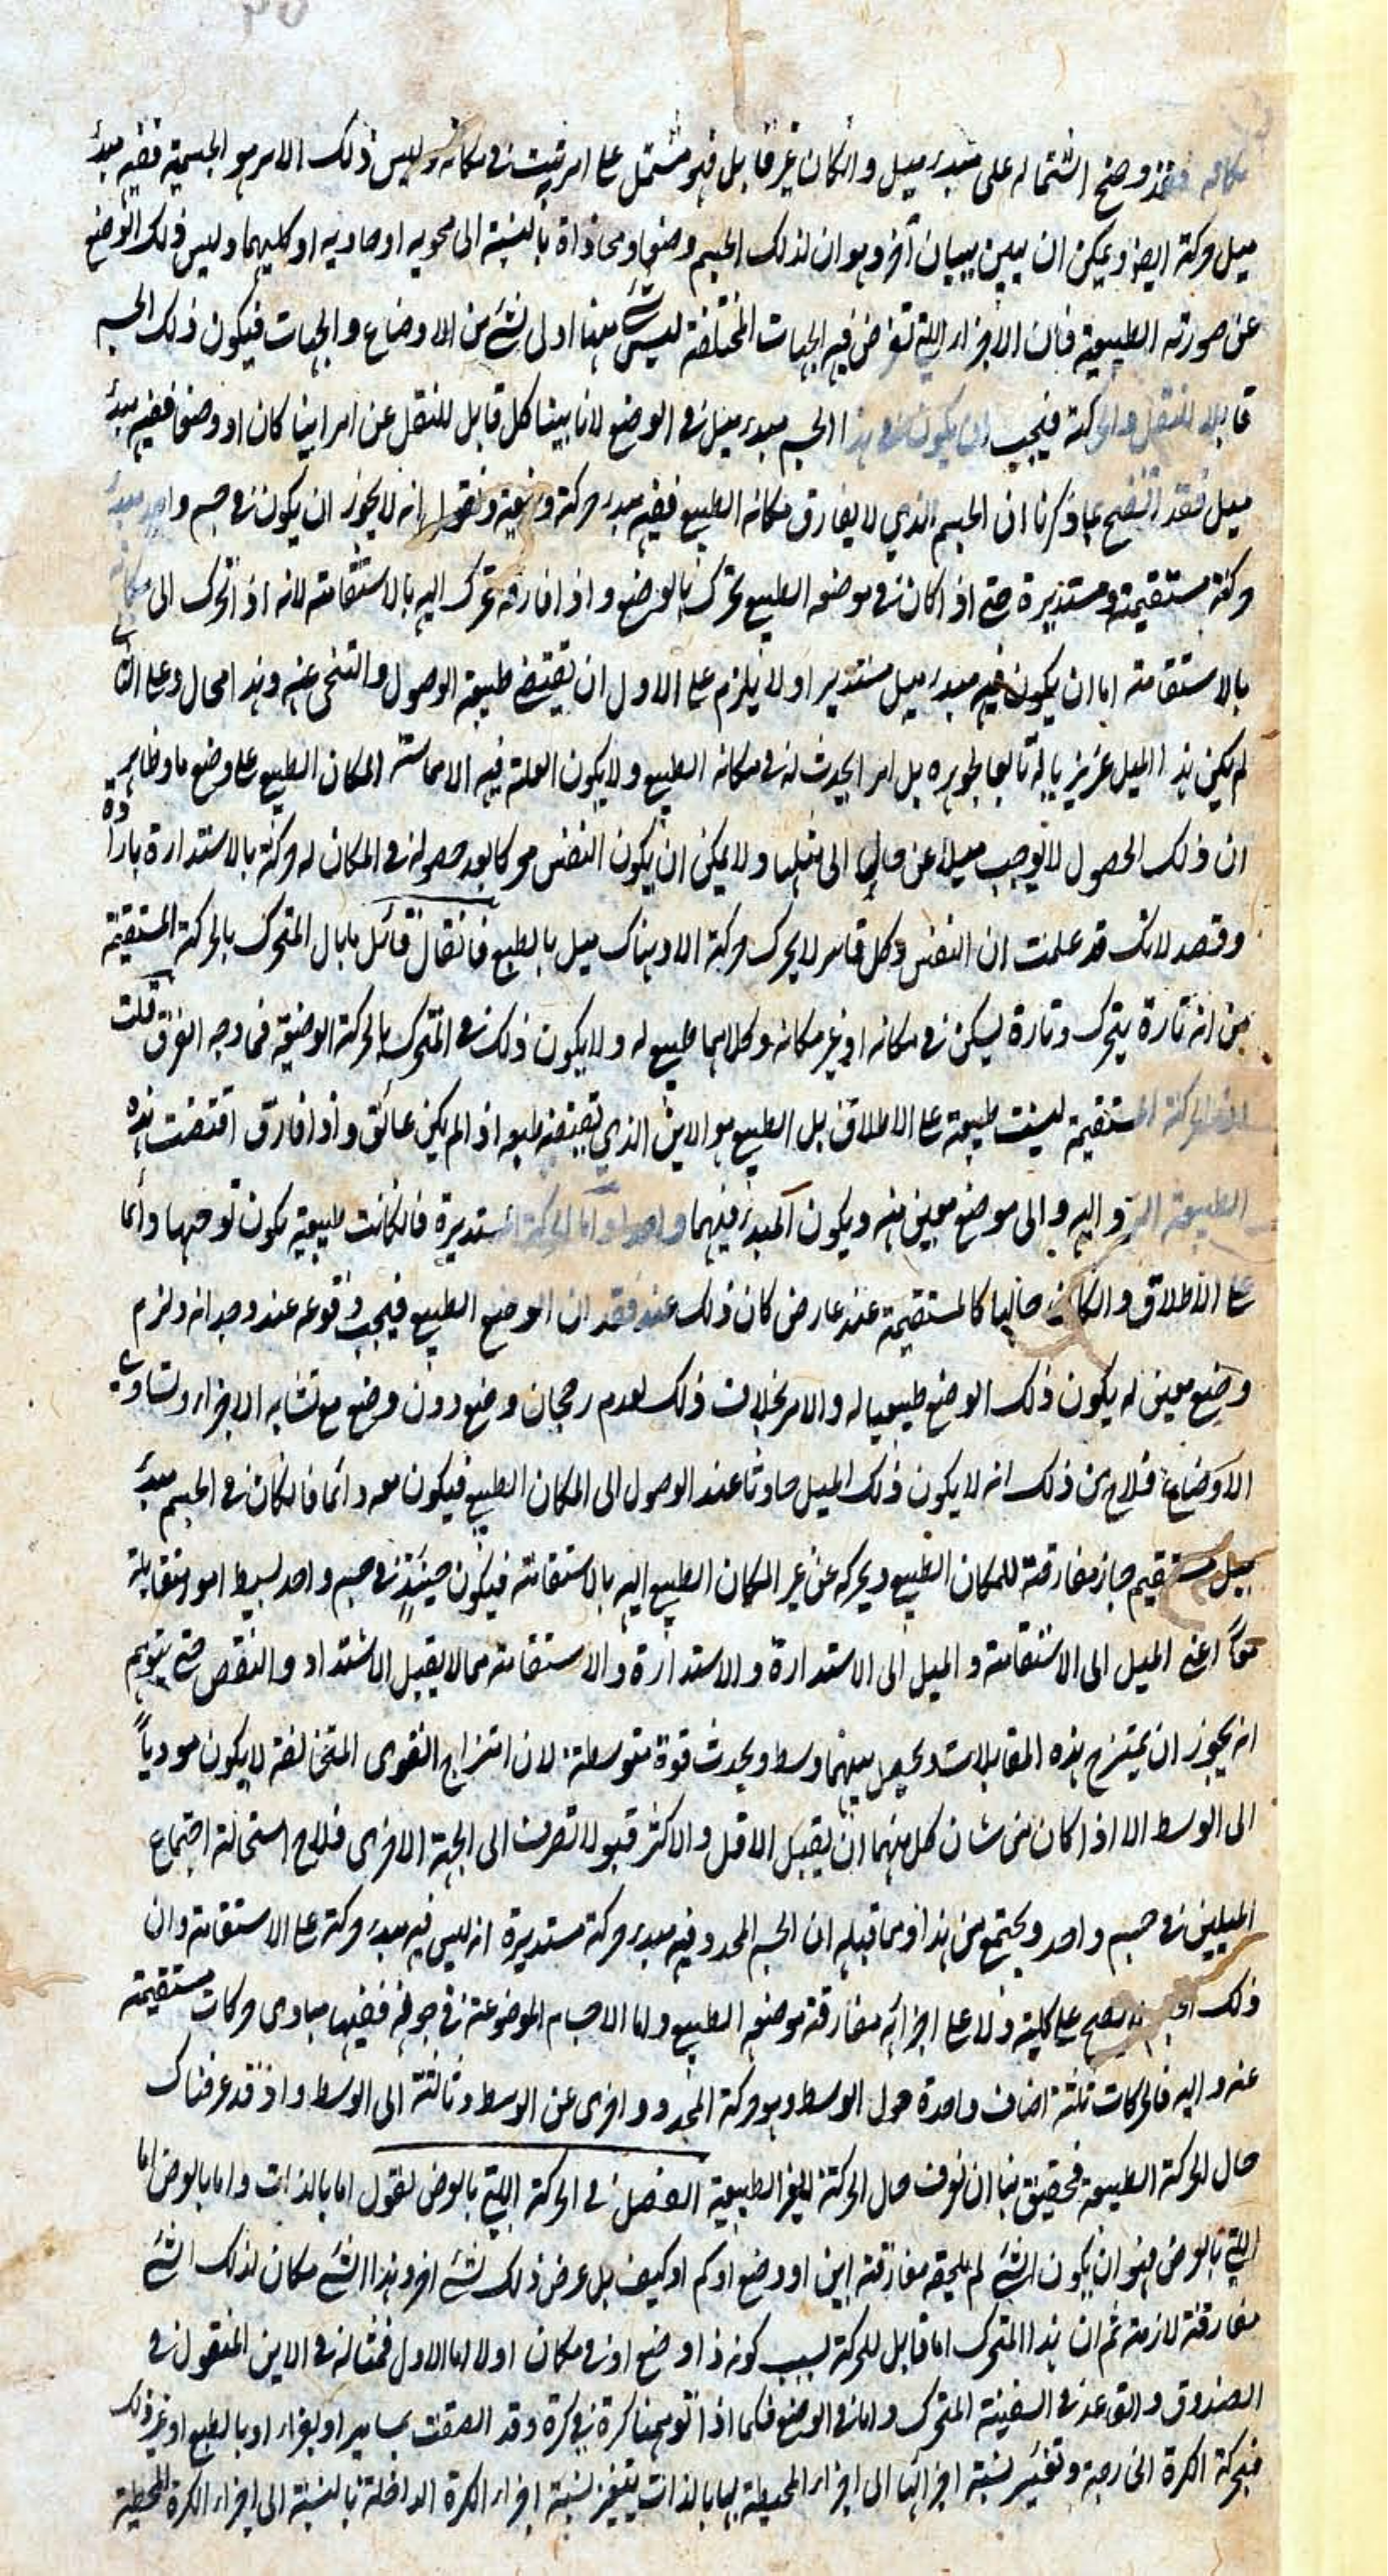 مكانه فقد وضح اشتماله على مبدء ميل وانكان غير قابل فهو مشتمل على امر يثبت فى مكانه وليس ذلك الامر هو الجسمية ففيه مبدء
ميل وحركة ايضا ويمكن ان يبين ببيان آخر وهو ان لذلك الجسم وضعا ومحاذاة بالنسبة الى محويه او حاويه او كليهما وليس ذلك الوضع
عن صورته الطبيعية فان الاجزاء اللتى تفرض فيه الجهات المختلفة ليس شئ منها اولى بشئ من الاوضاع والجهات فيكون ذلك الجسم
قابلا للنقل والحركة فيجب ان يكون فى هذا الجسم مبدء ميل فى الوضع لانا بينا كل قابل للنقل عن امر اينا كان او وضعا ففيه مبدء
ميل فقد اتضح بما ذكرنا ان الجسم الذي لا يفارق مكانه الطبيعى ففيه مبدء حركة وضعية ونقول انه لا يجوز ان يكون فى جسم واحد مبدء
حركة مستقيمة ومستديرة حتى اذا كان فى موضعه الطبيعى تحرك بالوضع واذا فارقه تحرك اليه بالاستقامة لانه اذا تحرك الى مكانه
بالاستقامة اما ان يكون فيه مبدء ميل مستدير او لا يلزم على الاول ان تقتضى طبيعة الوصول والتنحى عنه وهذا محال وعلى الثانى
لم يكن هذا الميل غريزيا له تابعا لجوهره بل امر الحدث له فى مكانه الطبيعى ولا يكون العلة فيه الا مماسة المكان الطبيعى على وضع ما وظاهر
ان ذلك الحصول لا يوجب ميلا عن حالة الى مثلها ولا يمكن ان يكون النفس محركا بعد حصوله فى المكان له حركة بالاستدارة بارادة
وقصد لانك قد علمت ان النفس وكل قاسر لا يحرك حركة الا وهناك ميل بالطبع فان قال قائل ما بال المتحرك بالحركة المستقيمة
من انه تارة يتحرك وتارة يسكن فى مكانه او غير مكانه وكلاهما طبيعى له ولا يكون ذلك فى المتحرك بالحركة الوضعية فما وجه الفرق قلت
ان الحركة المستقيمة ليست طبيعية على الاطلاق بل الطبيعى هو الاين الذي تقتضيه طبعه اذا لم يكن عائق واذا فارق اقتضت هذه
الطبيعة الرد اليه والى موضع معين منه ويكون المبدء فيهما واحدا واما الحركة المستديرة فان كانت طبيعية يكون توجهها دائما
على الاطلاق وانكان حالها كالمستقيمة عند عارض كان ذلك عند فقدان الوضع الطبيعى فيجب وقوعه عند وجدانه ولزم
وضع معين له يكون ذلك الوضع طبيعيا له والامر بخلاف ذلك لعدم رجحان وضع دون وضع مع تشابه الاجزاء وتساوى
الاوضاع فلاح من ذلك انه لا يكون ذلك الميل حادثا عند الوصول الى المكان الطبيعى فيكون معه دائما فان كان فى الجسم مبدء
ميل مستقيم جاز مفارقته للمكان الطبيعى ويحركه عن غير المكان الطبيعى اليه بالاستقامة فيكون حينئذ فى جسم واحد بسيط امور متقابلة
معًا اعنى الميل الى الاستقامة والميل الى الاستدارة والاستدارة والاستقامة مما لا يقبل الاشتداد والنقص حتى يتوهم
انه يجوز ان يمتزج هذه المقابلات ويحصل بينهما وسط ويحدث قوة متوسطة لان امتزاج القوى المتخالفة لا يكون موديًا
الى الوسط الا اذا كان من شان كل منهما ان يقبل الاقل والاكثر قبولا لا تصرف الى الجهة الاخرى فلاح استحالة اجتماع
الميلين فى جسم واحد ويجتمع من هذا ومما قبله ان الجسم المحدد فيه مبدء حركة مستديرة انه ليس فيه مبدء حركة على الاستقامة وان
ذلك لا يصح على كليته ولا على اجزائه مفارقة موضعه الطبيعى واما الاجسام الموضوعة فى جوفه ففيها مبادى حركات مستقيمة
عنه واليه فالحركات ثلثة اصناف واحدة حول الوسط وهو حركة المحدد واخرى عن الوسط وثالثة الى الوسط واذ قد عرفناك
حال الحركة الطبيعية فحقيق بنا ان نعرف حال الحركة الغير الطبيعية الفصل فى الحركة اللتى بالعرض نقول اما بالذات واما بالعرض اما
اللتى بالعرض فهو ان يكون الشئ لم يلحقه مفارقة اين او وضع او كم او كيف بل عرض ذلك لشئ اخر وهذا الشئ مكان لذلك الشئ
مفارقة لازمة ثم ان هذا المتحرك اما قابل للحركة بسبب كونه ذا وضع او فى مكان او لا اما الاول فمثاله فى الاين المنقول فى
الصندوق والقاعد فى السفينة المتحرك واما فى الوضع فكما اذا توهمنا كرة فى كرة وقد الصقت بمسامير او بغراء او بالطبع او غير ذلك
فبحركة الكرة الخارجة وتغيير نسبة اجزائها الى اجزاء المحيطة بها بالذات يتغير نسبة اجزاء الكرة الداخلة بالنسبة الى اجزاء الكرة المحيطة